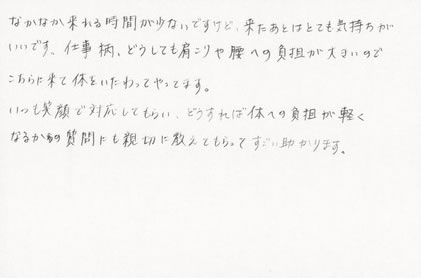 なかなか来れる時間が少ないですけど、来たあとはとても気持ちが
いいです。仕事柄、どうしても肩こりや腰への負担が大きいので
こちらに来て体をいたわってやってます。
いつも笑顔で対応してもらい、どうすれば体への負担が軽く
なるかの質問にも親切に教えてもらってすごい助かります。